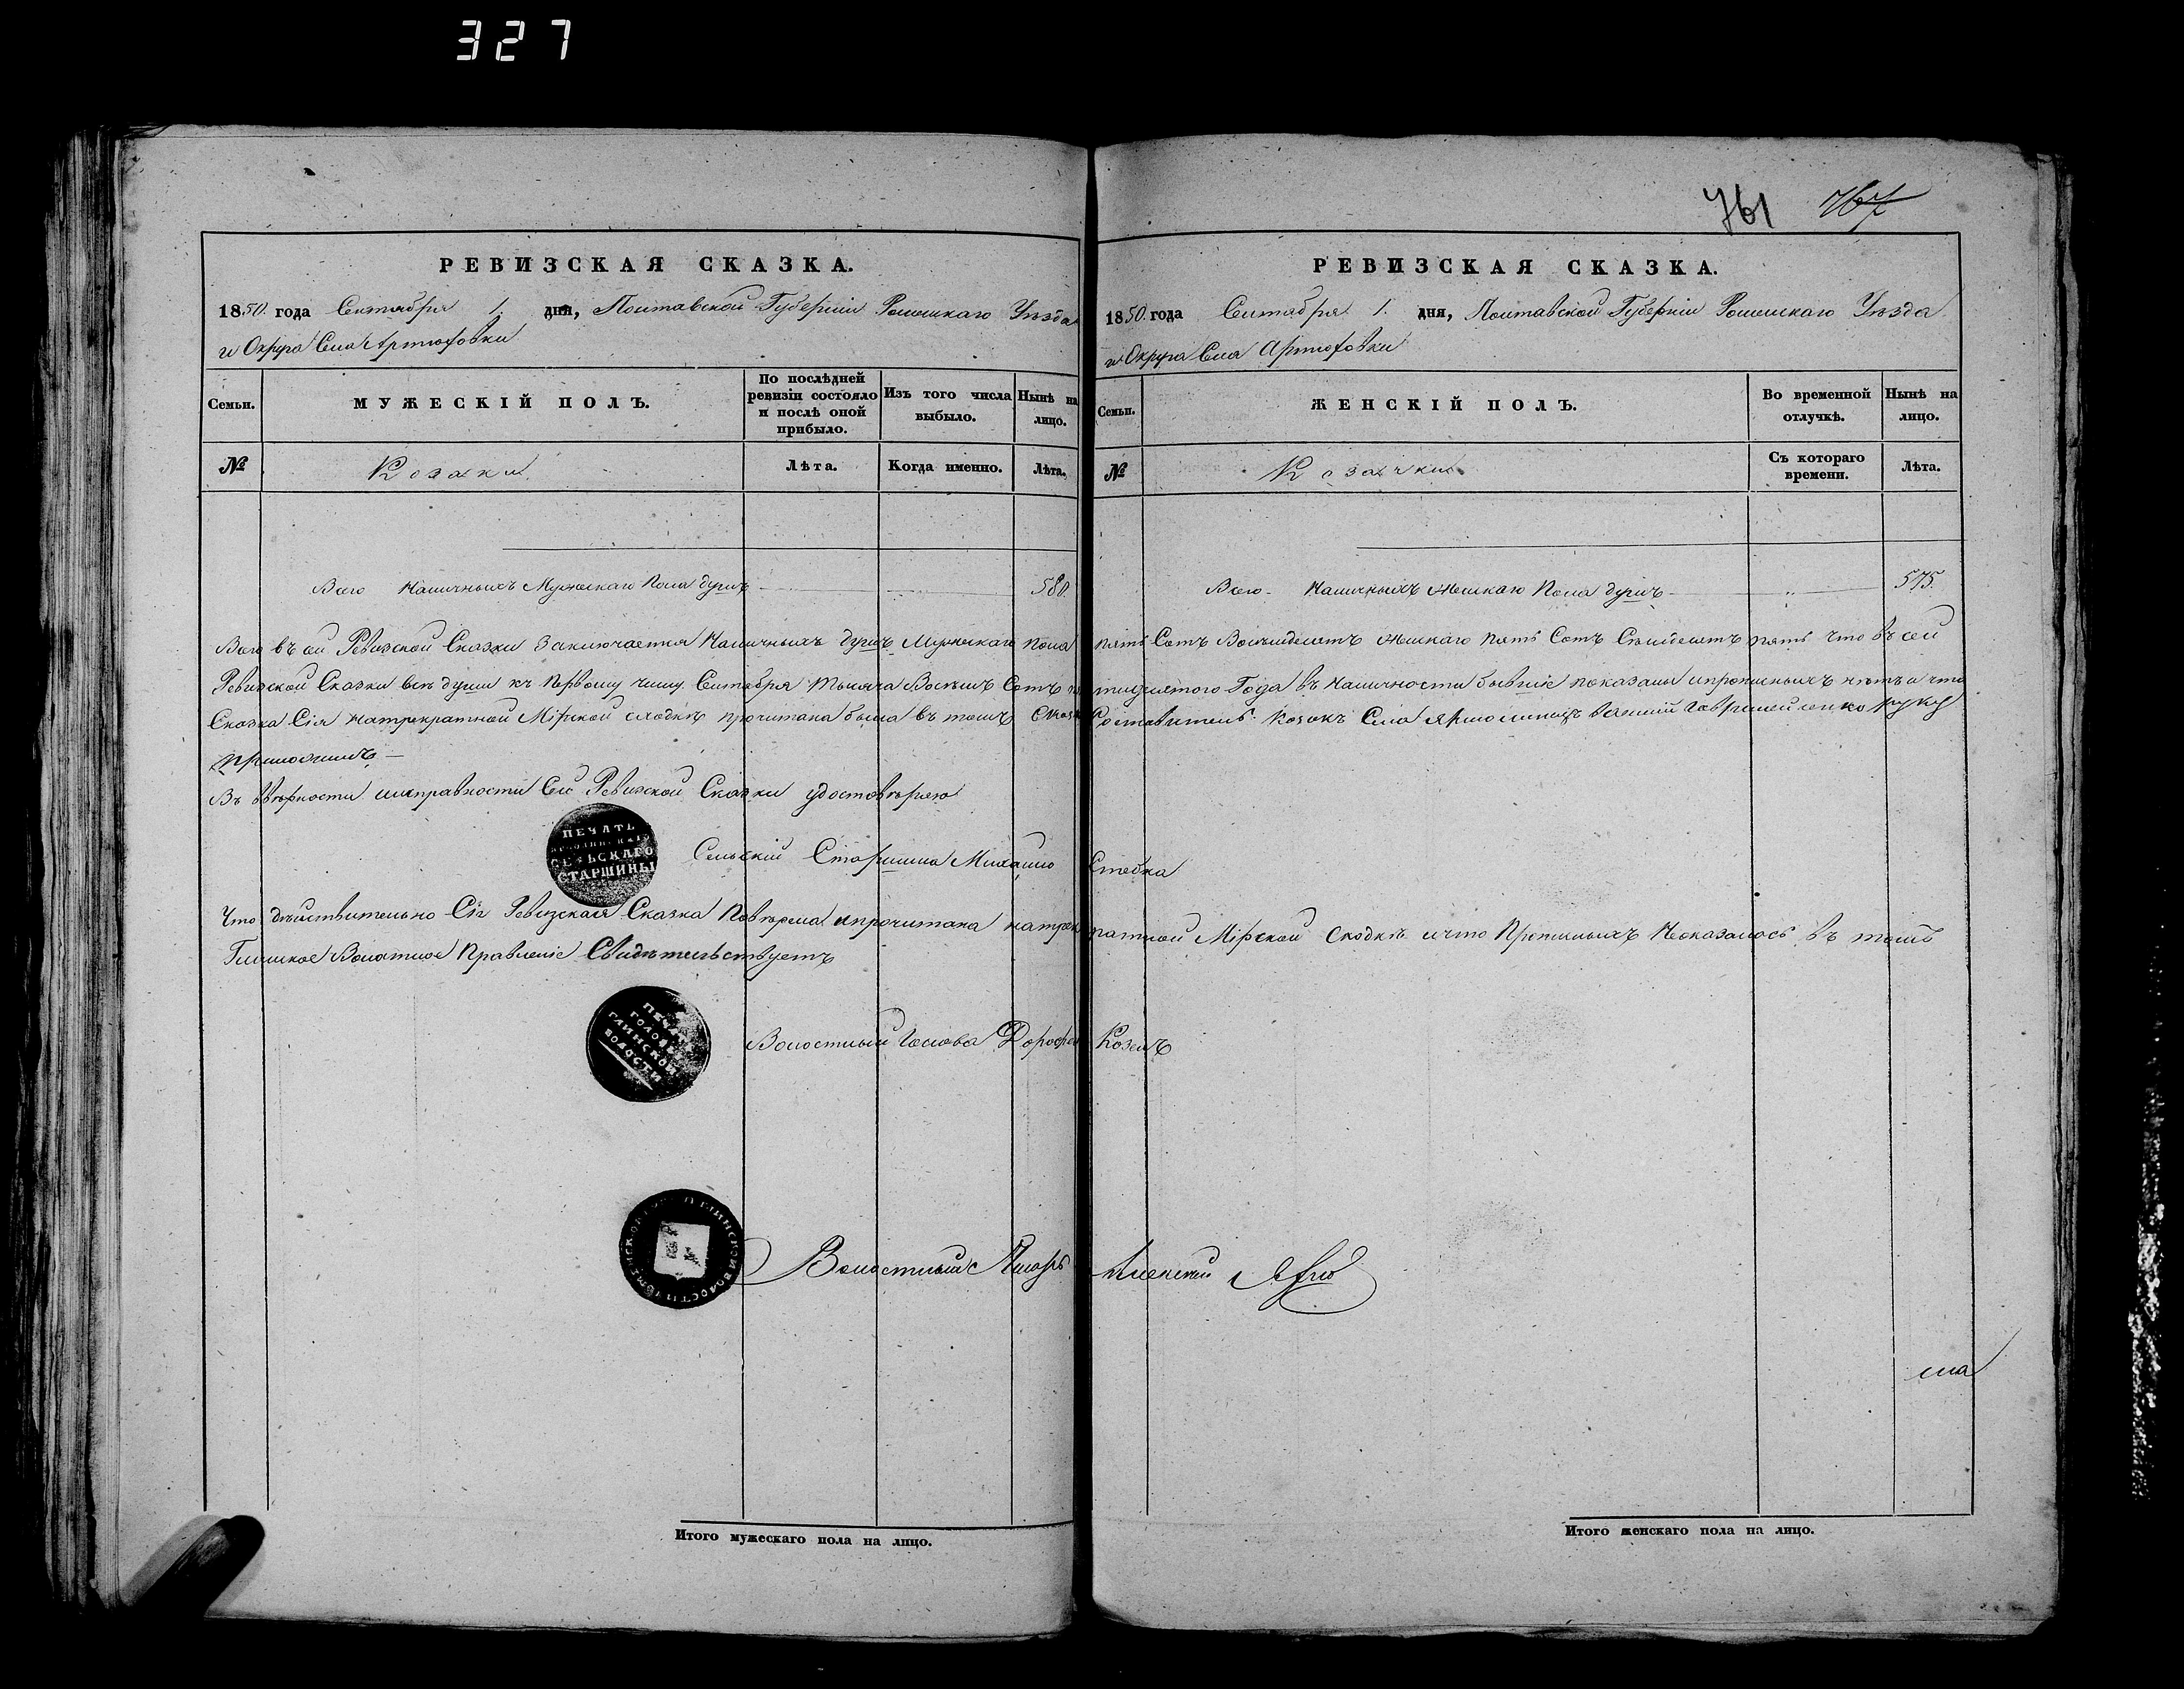 327
761 767
РЕВИЗСКАЯ СКАЗКА.
1850. года Сентября 1. дня, Полтавской Губерніи Роменскаго Уѣзда
и Округа Села Артюховки
Семьи.
МУЖЕСКІЙ ПОЛЪ.
По послѣдней ревизіи состояло и послѣ оной прибыло.
Изъ того числа выбыло.
Нынѣ на лицо.
№
Козаки
Лѣта.
Когда именно.
Лѣта.
Всего Наличныхъ Мужескаго Пола душъ 580.
РЕВИЗСКАЯ СКАЗКА.
1850. года Сентября 1. дня, Полтавской Губерніи Роменскаго Уѣзда
и Округа Села Артюховки
Семьи.
ЖЕНСКІЙ ПОЛЪ.
Во временной отлучкѣ.
Нынѣ на лицо.
№
Козачки
Съ котораго времени.
Лѣта.
Всего Наличныхъ Женскаго Пола душъ 575.
Всего въ сей Ревизской Сказки Заключается Наличныхъ душъ Мужескаго Пола пять Сотъ Восемдесятъ Женскаго пять Сотъ Семдесятъ пять что въ сей
Ревизской Сказки всѣ души къ Первому числу Сентября Тысяча Восемъ Сотъ пятидесятого Года въ Наличности бывшіе показаны и прописныхъ нѣтъ и что
Сказка Сія на трекратной Мірской сходкѣ прочитана была въ томъ Сказко Составитель Козакъ Села руку
приложилъ
Въ вѣрности и исправности Сей Ревизской Сказки удостовѣряю
ПЕЧАТЬ
СЕЛЬСКАГО
СТАРШИНЫ
Сельскій Старшина Михайло Стебка
Что дѣйствительно Сія Ревизская Сказка Повѣрена и прочитана на трекратной Мірской Сходкѣ и что Прописныхъ Неоказалось въ томъ
Глинское Волостное Правленіе Свидѣтельствуетъ
ПЕЧАТЬ
ГОЛОВЫ
ГЛИНСКОЙ
ВОЛОСТИ
Волостный Голова Дорофей Козелъ
ГЛИНСКОЙ ВОЛОСТИ
Волостный Писарь Алексей
Итого мужескаго пола на лицо.
Итого женскаго пола на лицо.